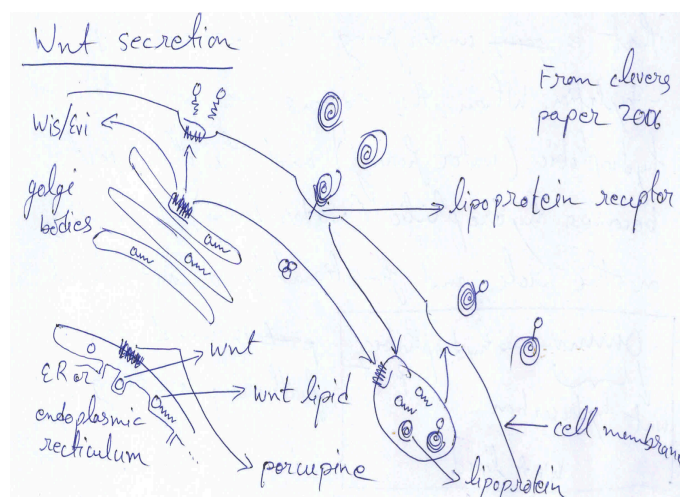 Wnt secretion
From clevers
paper 2006
Wis/Evi
golgi
bodies
lipoprotein receptor
wnt
ER or
endoplasmic
recticulum
wnt lipid
porcupine
cell membrane
lipoprotein